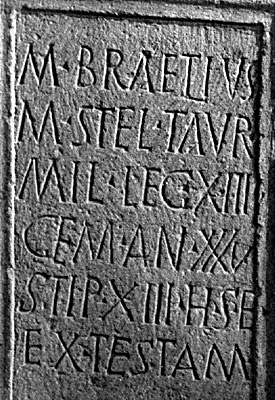 M·BRAETIVS
M·STEL·TAVR
MIL·LEG·XIII
GEM·AN·XXV
STIP·XIII·H·S·E
EX·TESTAM